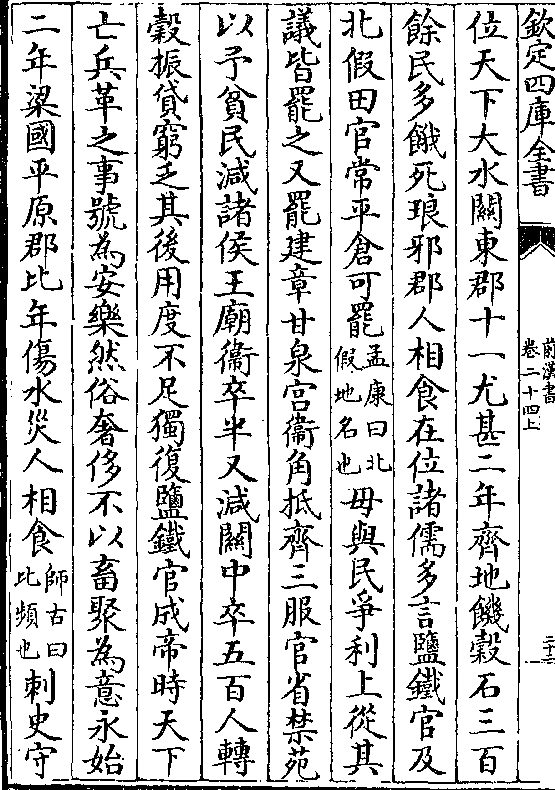 欽定四庫全書
前漢書
卷二十四上
二十二
位天下大水關東郡十一尤甚二年齊地饑穀石三百
餘民多餓死琅邪郡人相食在位諸儒多言鹽鐵官及
北假田官常平倉可罷孟康曰北假地名也毋與民爭利上從其
議皆罷之又罷建章甘泉宮衞角抵齊三服官省禁苑
以予貧民減諸侯王廟衞卒半又減關中卒五百人轉
穀振貸窮乏其後用度不足獨復鹽鐵官成帝時天下
亡兵革之事號為安樂然俗奢侈不以畜聚為意永始
二年梁國平原郡比年傷水災人相食師古曰比頻也刺史守